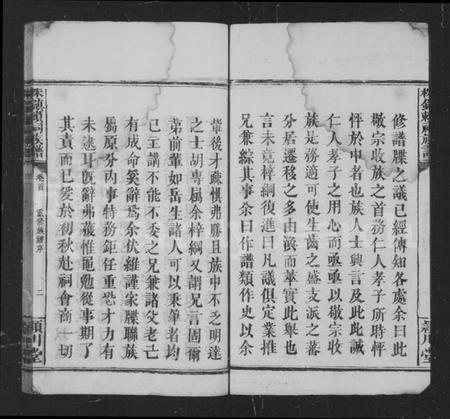 修譜牒之議已經傳知各處余曰此
敬宗收族之首務仁人孝子所時怦
怦於中者也族人士興言及此此誠
仁人孝子之用心而亟亟以敬宗收
族是務適可使生齒之盛支派之蕃
分居遷移之多由渙而萃實此舉也
言未竟梓綱復進曰凡議俱定業推
兄兼綜其事余曰作譜類作史以余
株
潁川堂
卷首
二
潁川堂
輩後才疎懼弗勝且族中不乏明達
之士胡專屬余梓綱又謂兄言固爾
第前輩如岳生諸人可以秉筆者均
已主講不能不委之兄兼諸父老已
有成命奚辭為余伏維謹家牒聯族
屬原分內事特務鉅任重恐才力有
未逮耳旣辭弗獲惟黽勉從事期了
其責而已爰於初秋赴祠會商一切